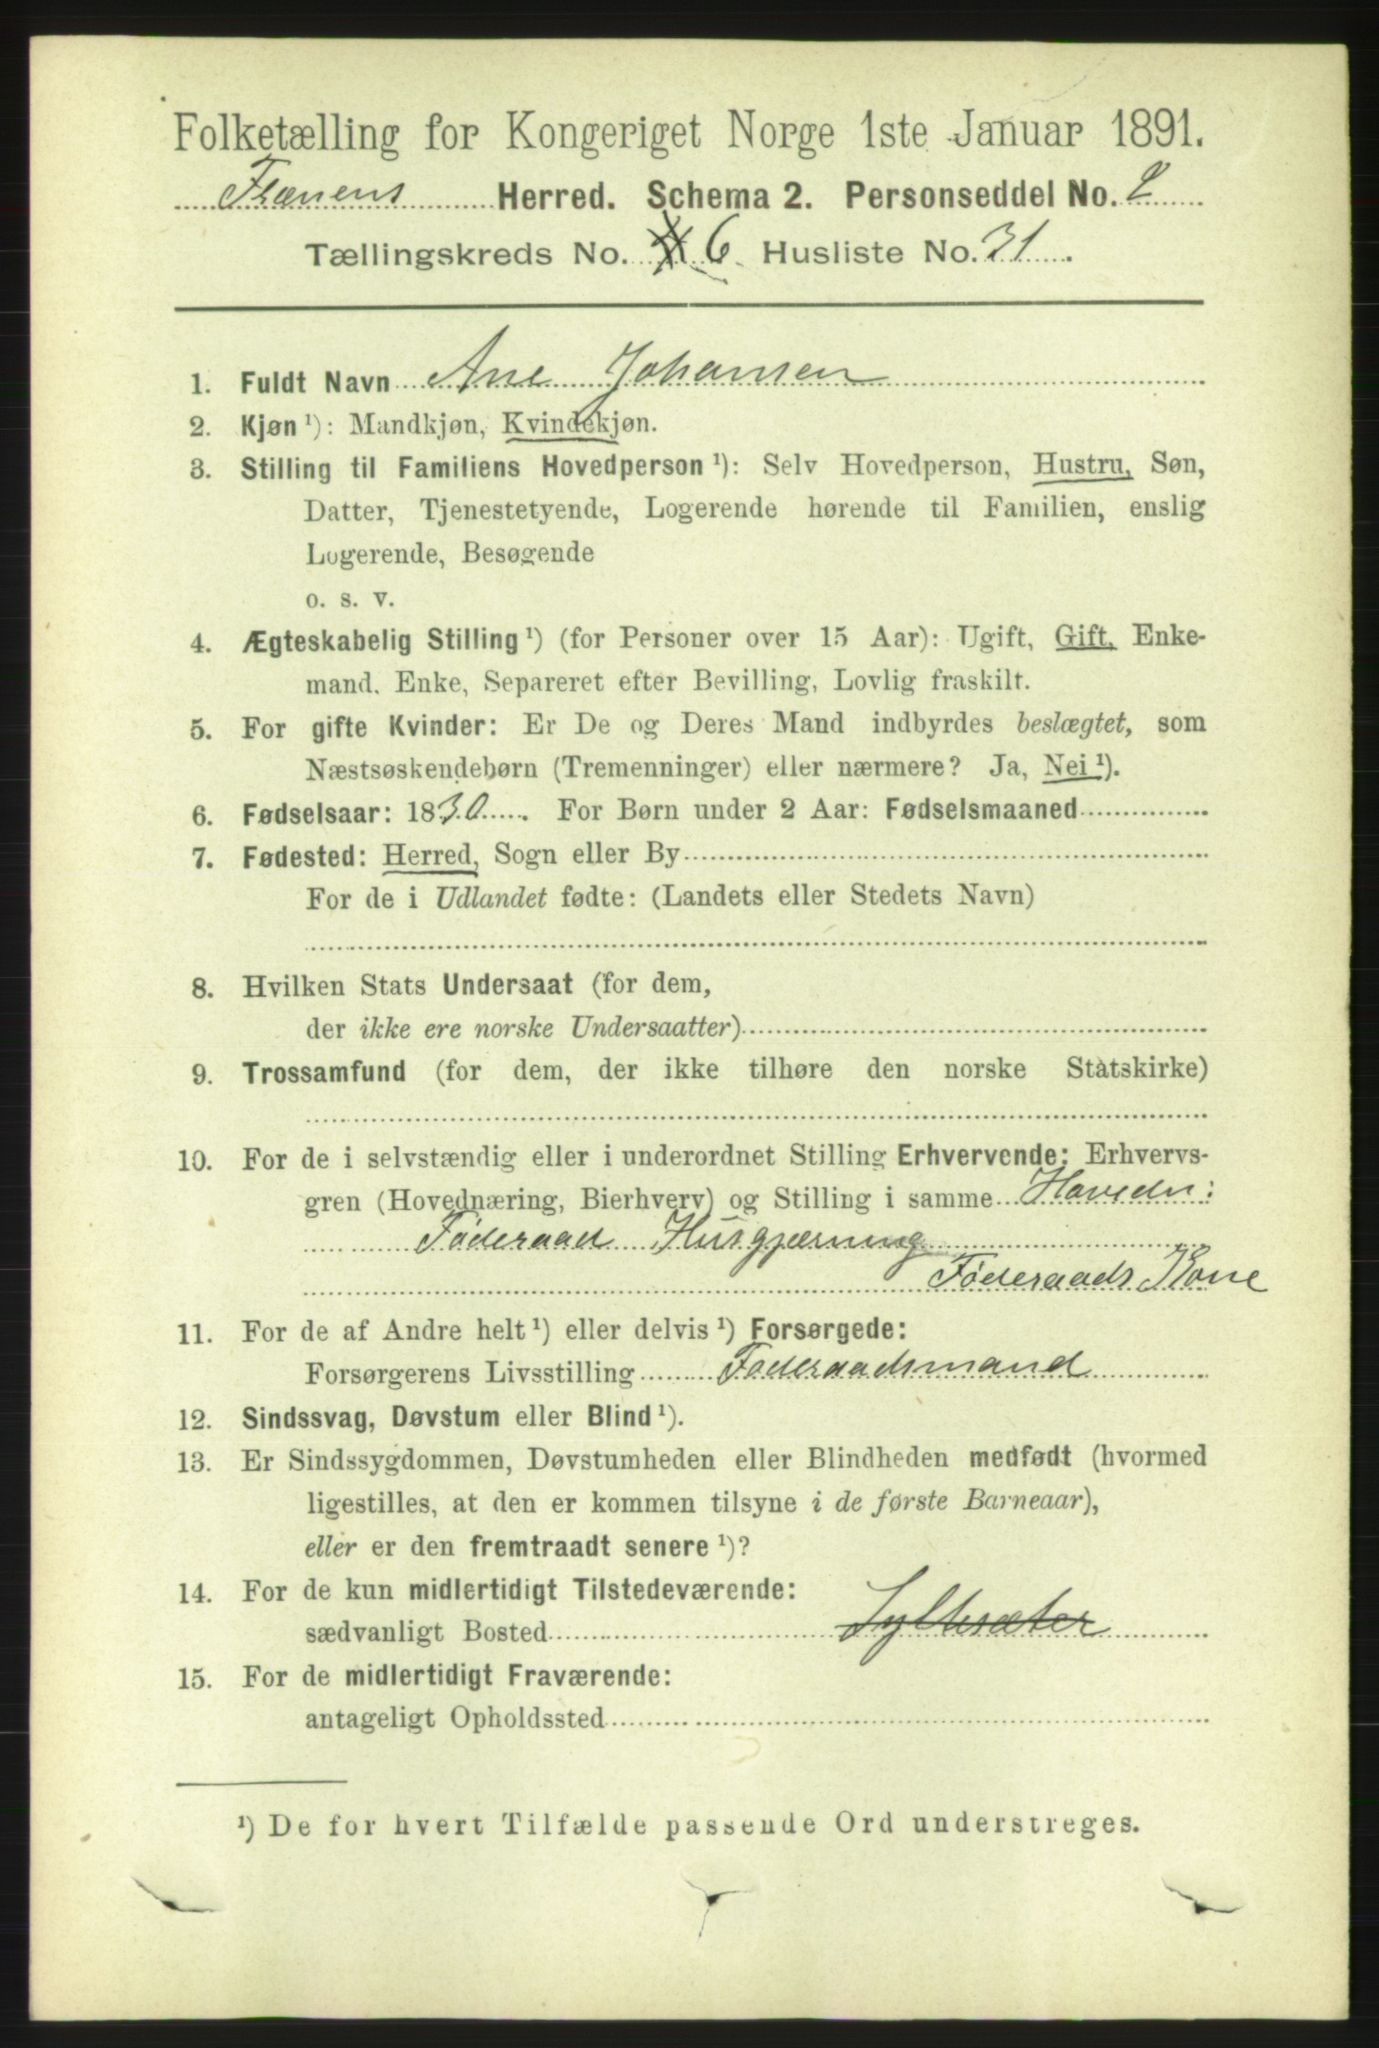 Folketælling for Kongeriget Norge 1ste Januar 1891.
Frænens Herred. Schema 2. Personseddel No. 2
Tællingskreds No. 6 Husliste No. 31.
1. Fuldt Navn Ane Johansen
2. Kjøn ¹): Mandkjøn, Kvindekjøn.
3. Stilling til Familiens Hovedperson ¹): Selv Hovedperson, Hustru, Søn,
Datter, Tjenestetyende, Logerende hørende til Familien, enslig
Logerende, Besøgende
o. s. v.
4. Ægteskabelig Stilling ¹) (for Personer over 15 Aar): Ugift, Gift, Enke-
mand, Enke, Separeret efter Bevilling, Lovlig fraskilt.
5. For gifte Kvinder: Er De og Deres Mand indbyrdes beslægtet, som
Næstsøskendebørn (Tremenninger) eller nærmere? Ja, Nei ¹).
6. Fødselsaar: 1830. For Børn under 2 Aar: Fødselsmaaned
7. Fødested: Herred, Sogn eller By
For de i Udlandet fødte: (Landets eller Stedets Navn)
8. Hvilken Stats Undersaat (for dem,
der ikke ere norske Undersaatter)
9. Trossamfund (for dem, der ikke tilhøre den norske Statskirke)
10. For de i selvstændig eller i underordnet Stilling Erhvervende: Erhvervs-
gren (Hovednæring, Bierhverv) og Stilling i samme Hovedn:
Føderaad Husgjærning
Føderaads Kone
11. For de af Andre helt ¹) eller delvis ¹) Forsørgede:
Forsørgerens Livsstilling Føderaadsmand
12. Sindssvag, Døvstum eller Blind ¹).
13. Er Sindssygdommen, Døvstumheden eller Blindheden medfødt (hvormed
ligestilles, at den er kommen tilsyne i de første Barneaar),
eller er den fremtraadt senere ¹)?
14. For de kun midlertidigt Tilstedeværende:
sædvanligt Bosted Syltesæter
15. For de midlertidigt Fraværende:
antageligt Opholdssted
¹) De for hvert Tilfælde passende Ord understreges.